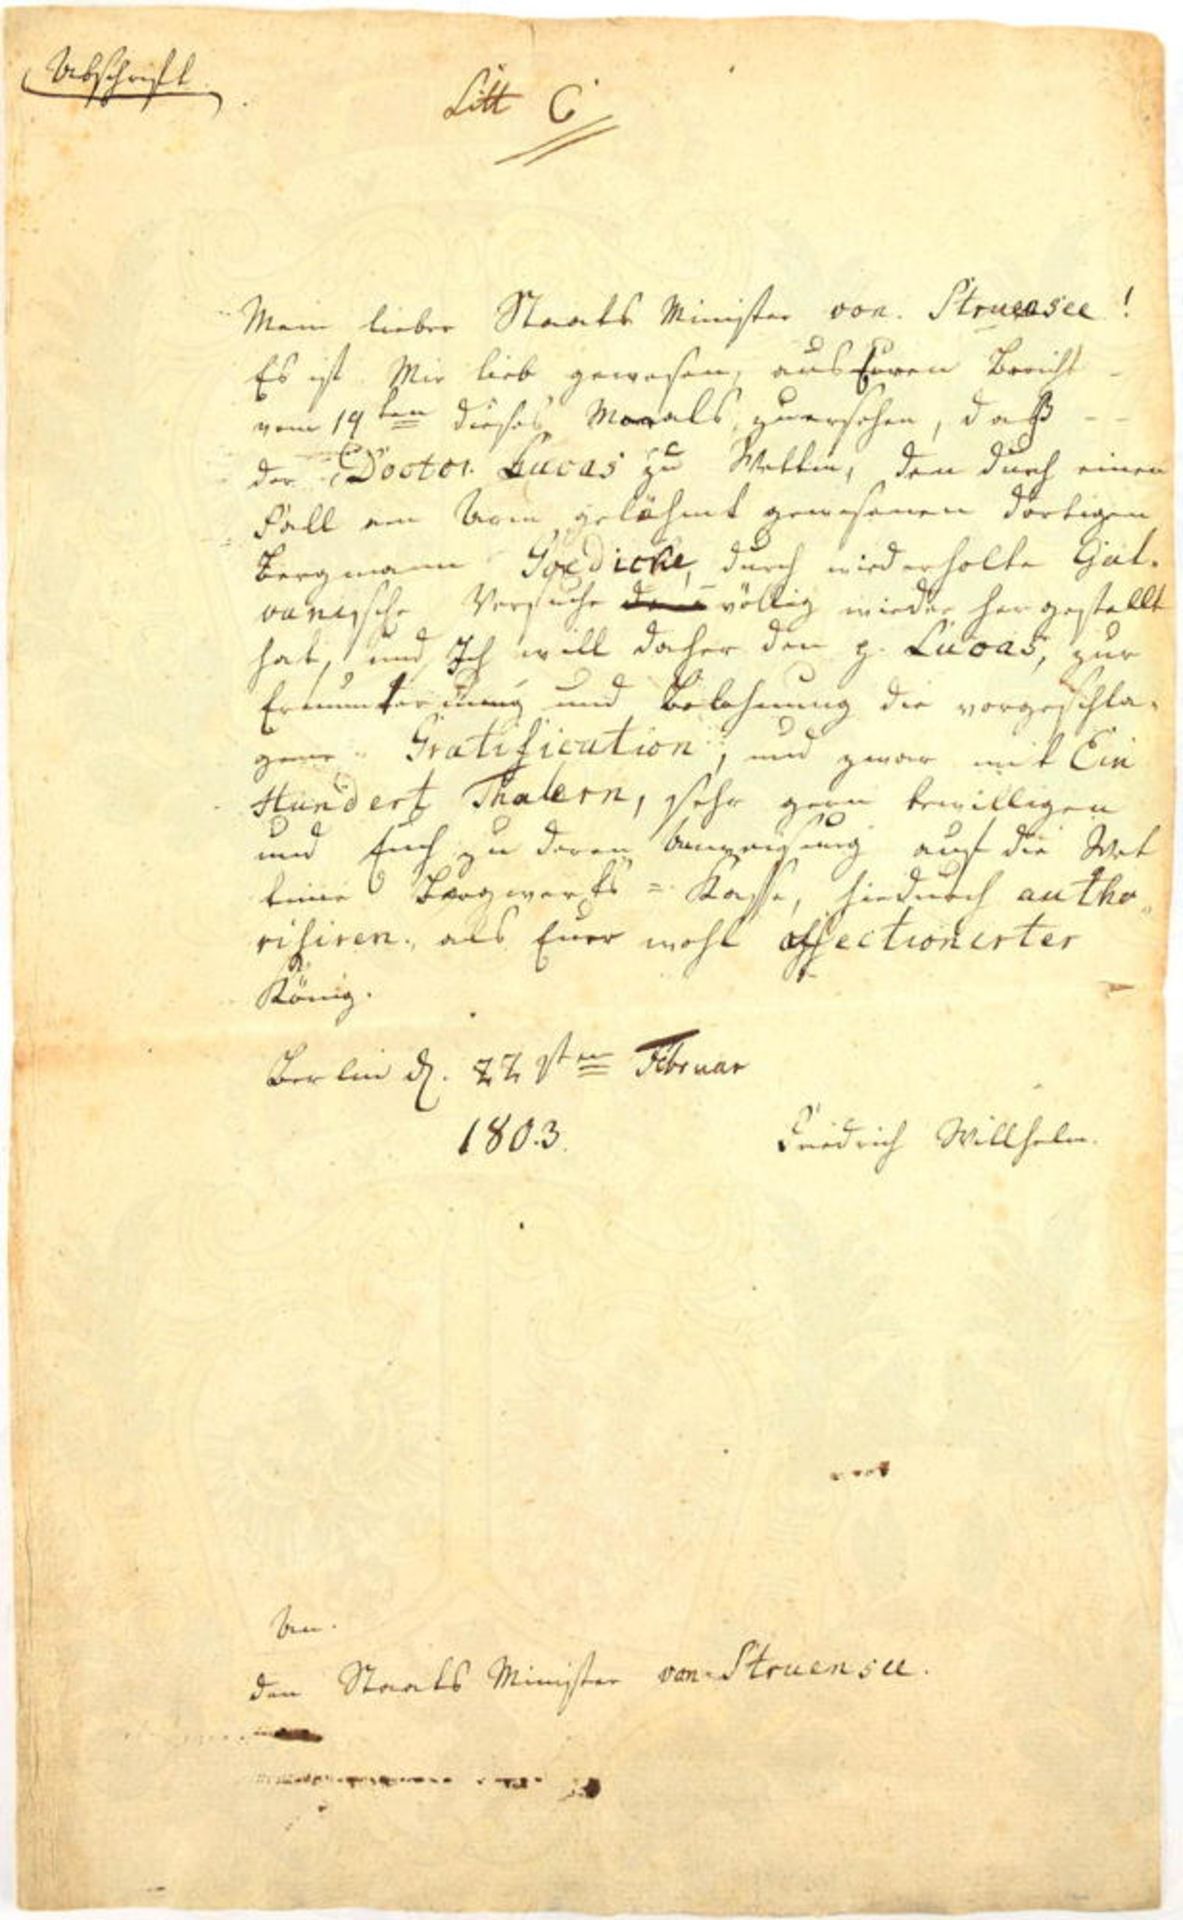 Abschrift
Litt C
Mein lieber Staats Minister von Struensee!
Es ist Mir lieb gewesen, aus Euren Bericht
vom 19ten dieses Monats, zuersehen, daß
der Doctor Lucas zu Wettin, den durch einen
Fall am Arm gelähmt gewesenen dortigen
Bergmann Goedicke, durch wiederholte Gal-
vanische Versuche völlig wieder hergestellt
hat, und Ich will daher den p. Lucas, zur
Ermunterung und Belohnung die vorgeschla-
gene Gratification, und zwar mit Ein
Hundert Thalern, sehr gern bewilligen
und Euch zu deren Anweisung auf die Wet
tiner Bergwerks-Kasse, hiedurch autho-
risiren, als Euer wohl affectionirter
König.
Berlin d. 22sten Februar
1803.
Friedrich Willhelm.
An
den Staats Minister von Struensee.